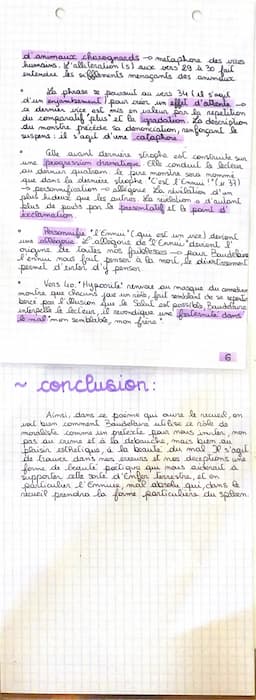 d'animaux charognards → métaphore des vices
humains. L'allitération (s) aux vers 29 à 30 fait
entendre les sifflements menaçants des animaux
• La phrase se poursuit au vers 34 (il s'agit
d'un enjambement) pour créer un effet d'attente →
ce dernier vice est mis en valeur par la répétition
du comparatif "plus" et la gradation. La description
du monstre précède sa dénonciation, renforçant le
suspens : il s'agit d'une cataphore.
• avant dernière strophe est construite sur
une progression dramatique. Elle conduit le lecteur
au dernier quatrain. Le pire monstre sera nommé
que dans la dernière strophe "C'est l'Ennui" (v 37)
→ personnification → allégorie. La révélation d'un
plus hideux que les autres. La révélation a d'autant
plus de poids par le présentatif et le point d'
exclamation.
• Personnifié, l'Ennui (qui est un vice) devient
une allégorie. L'allégorie de l'Ennui devient l'
origine de toutes nos faiblesses → pour Baudelaire
l'ennui nous fait penser à la mort, le divertissement
permet d'éviter d'y penser.
• Vers 40. "Hypocrite" renvoie au masque du comédien
montre que chacun joue un rôle, fait semblant de se repentir
bercé par l'illusion que le Salut est possible, Baudelaire
interpelle le lecteur, il revendique une fraternité dans
le mal "mon semblable, mon frère".
6
~ conclusion :
Ainsi, dans ce poème qui ouvre le recueil, on
voit bien comment Baudelaire utilise ce rôle de
moraliste comme un prétexte pour nous inviter, non
pas au crime et à la débauche, mais bien au
plaisir esthétique, à la beauté du mal. Il s'agit
de trouver dans nos erreurs et nos déceptions une
forme de beauté poétique qui nous aiderait à
supporter cette sorte d'Enfer terrestre, et en
particulier l'Ennui, mal absolu qui, dans le
recueil prendra la forme particulière du spleen.